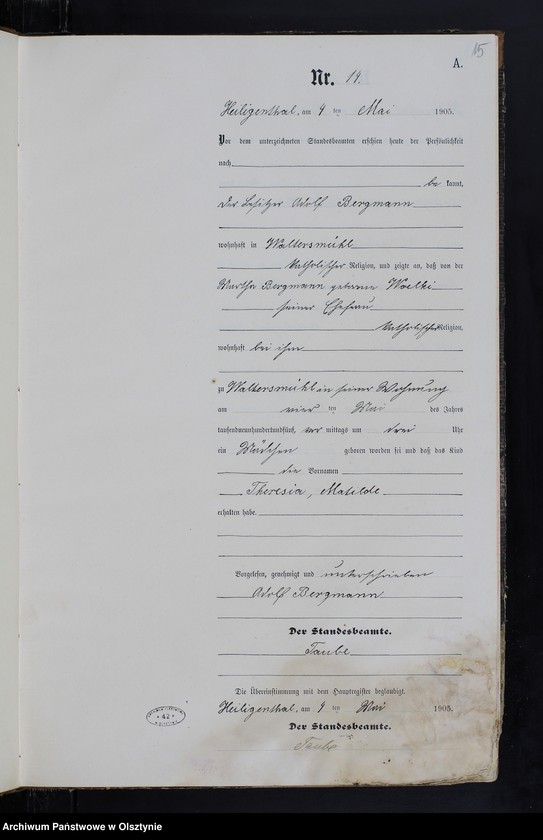 15
A.
Nr. 14.
Heiligenthal, am 9 ten Mai 1905.
Vor dem unterzeichneten Standesbeamten erschien heute der Persönlichkeit
nach
be kannt,
der Besitzer Adolf Bergmann
wohnhaft in Waltersmühl
katholischer Religion, und zeigte an, daß von der
Martha Bergmann geborene Woelki
seiner Ehefrau
katholischer Religion,
wohnhaft bei ihm
zu Waltersmühl in seiner Wohnung
am vier ten Mai des Jahres
tausendneunhundertundfünf, vor mittags um drei Uhr
ein Mädchen geboren worden sei und daß das Kind
die Vornamen
Theresia, Matilde
erhalten habe.
Vorgelesen, genehmigt und unterschrieben
Adolf Bergmann
Der Standesbeamte.
Taube
Die Übereinstimmung mit dem Hauptregister beglaubigt.
Heiligenthal, am 9 ten Mai 1905.
Der Standesbeamte.
Taube
* 42 *
Archiwum Państwowe w Olsztynie